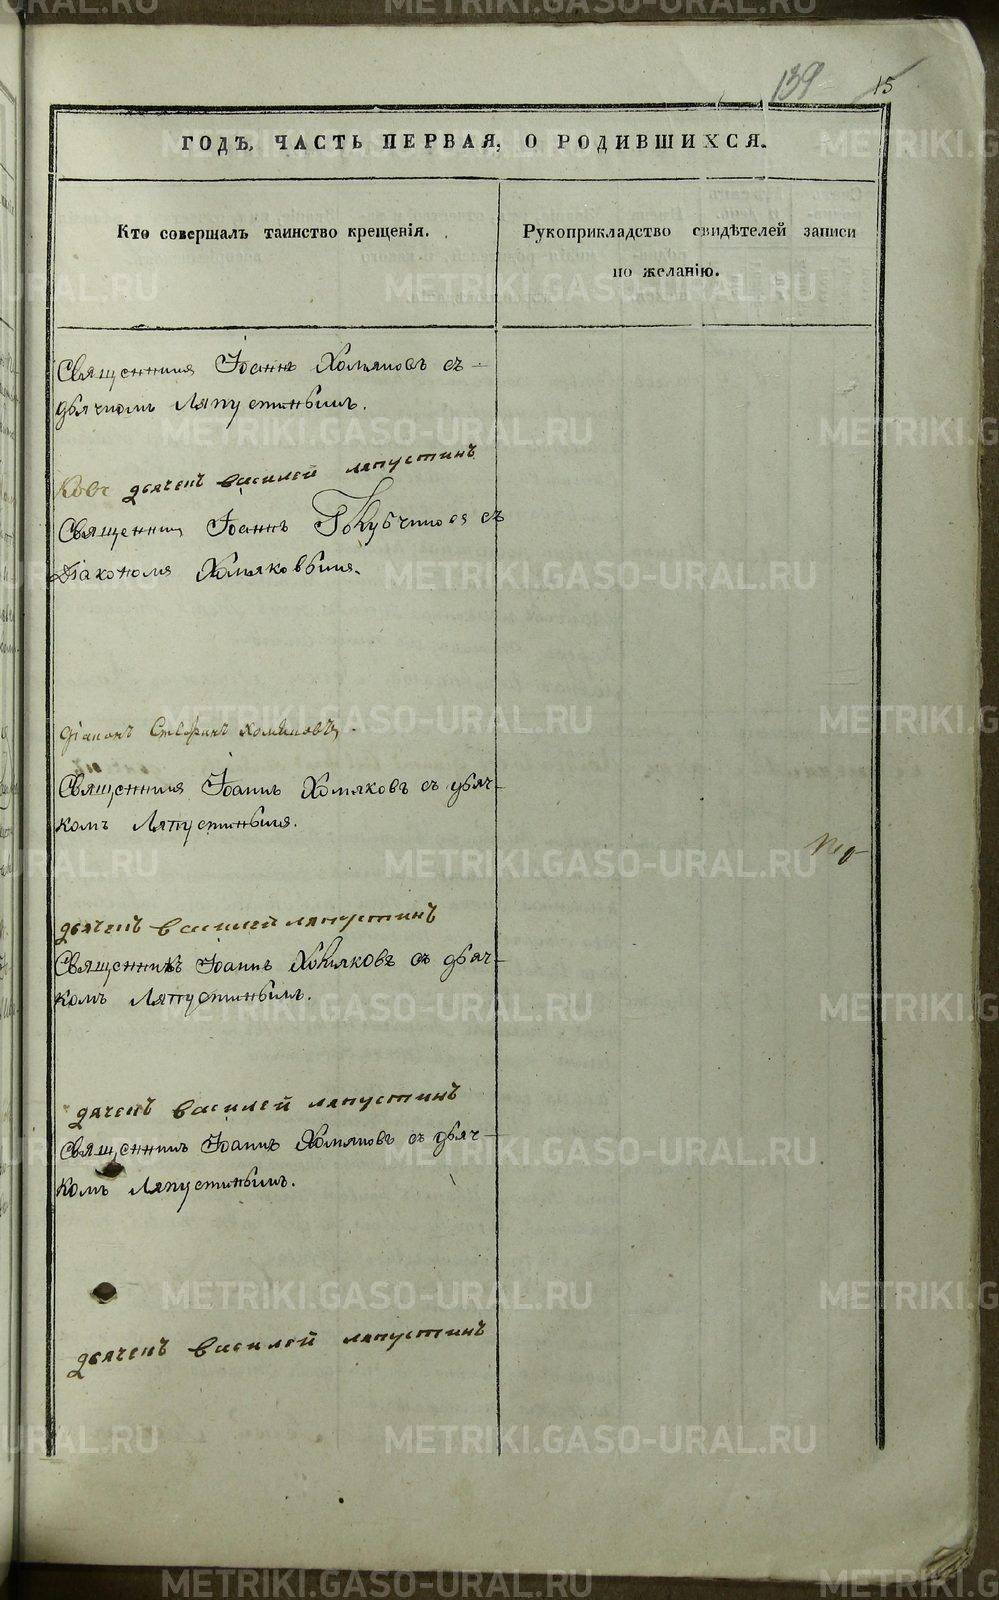 139 15
ГОДЪ, ЧАСТЬ ПЕРВАЯ, О РОДИВШИХСЯ.
Кто совершалъ таинство крещенія.
Рукоприкладство свидѣтелей записи
по желанію.
Священникъ Іоаннъ Хомяковъ съ
дьячкомъ Ляпустинымъ.
дьячекъ василей ляпустинъ
Священникъ Іоаннъ съ
Діакономъ Хомяковымъ.
діаконъ Стефанъ хомяковъ
Священникъ Іоаннъ Хомяковъ съ дьяч-
комъ Ляпустинымъ.
дьячекъ василей ляпустинъ
Священникъ Іоаннъ Хомяковъ съ дьяч-
комъ Ляпустинымъ.
дячекъ василей ляпустинъ
Священникъ Іоаннъ Хомяковъ съ дьяч-
комъ Ляпустинымъ.
дьячекъ василей ляпустинъ
METRIKI.GASO-URAL.RU